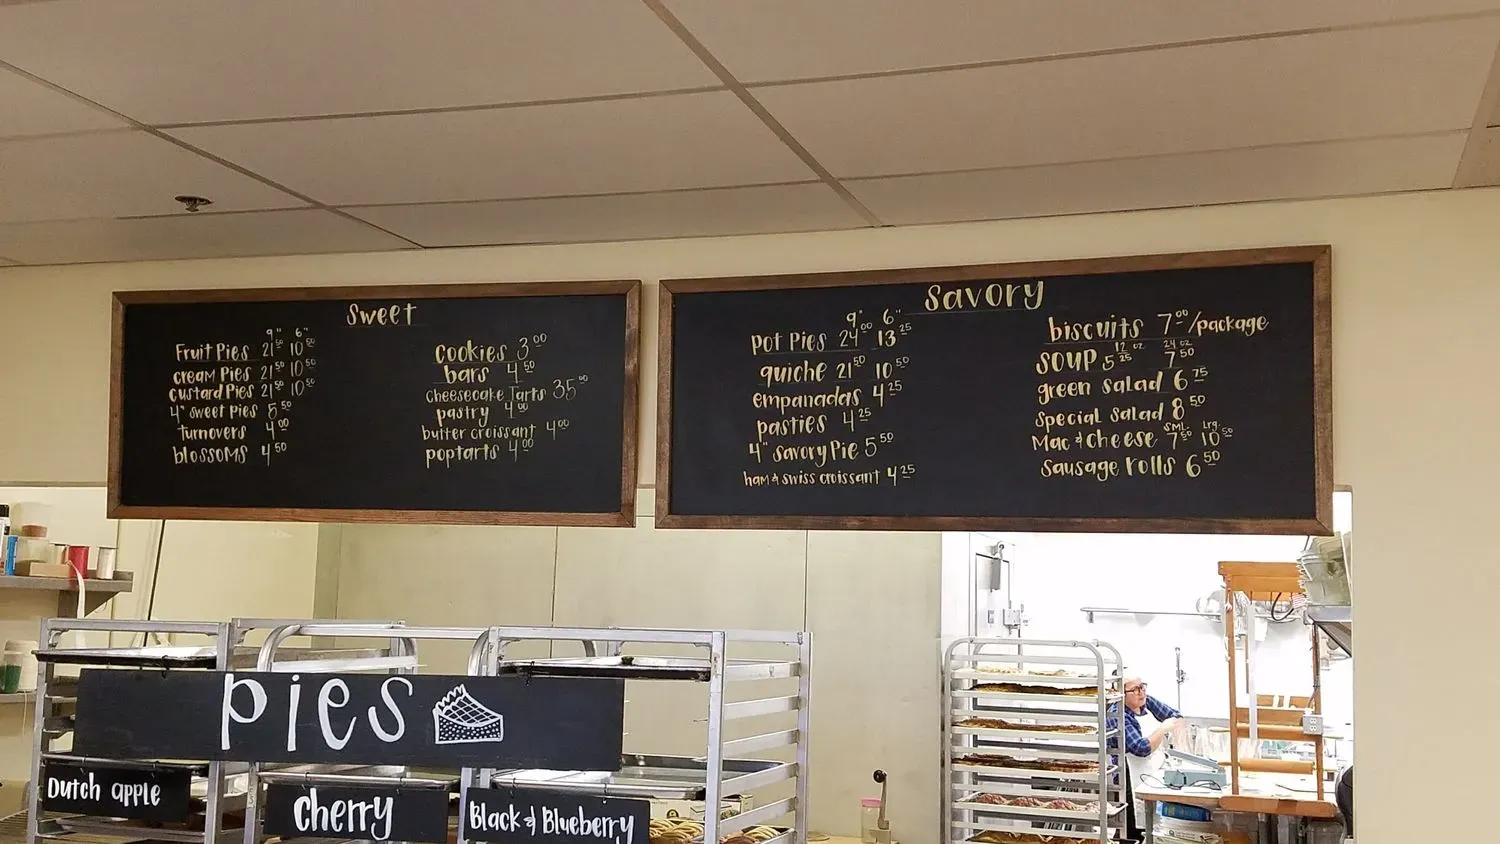 Sweet
9" 6"
Fruit Pies 21.50 10.50
cream Pies 21.50 10.50
custard Pies 21.50 10.50
4" sweet Pies 5.50
turnovers 4.00
blossoms 4.50
cookies 3.00
bars 4.50
cheesecake Tarts 35.00
pastry 4.00
butter croissant 4.00
poptarts 4.00
Savory
9" 6"
pot Pies 24.00 13.25
quiche 21.50 10.50
empanadas 4.25
pasties 4.25
4" savory Pie 5.50
ham & swiss croissant 4.25
biscuits 7.00/package
12 oz 24 oz
soup 5.25 7.50
green salad 6.75
special salad 8.50
SML. Lrg.
Mac & cheese 7.50 10.50
sausage rolls 6.50
pies
Dutch apple
cherry
Black & Blueberry